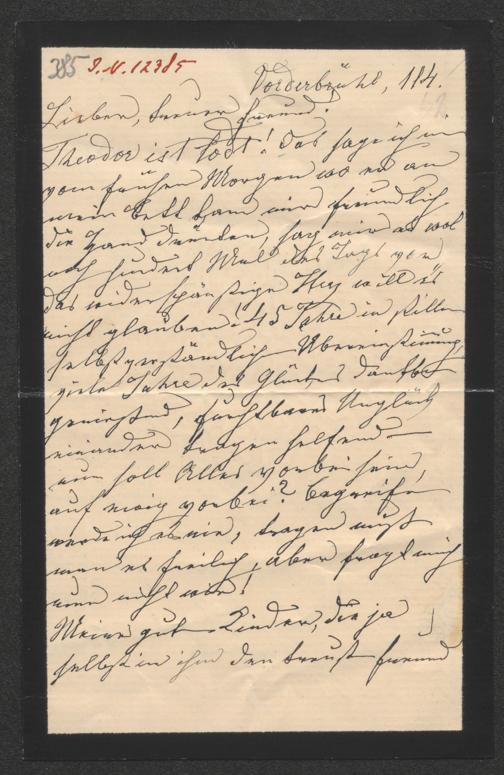 385 I.N. 12385
Vorderbrühl, 11/4.
Lieber, treuer Freund!
Theodor ist todt! Das sage ich mir
vom frühen Morgen wo er an
mein Bett kam mir freundlich
die Hand drücken, sag mir es wol
noch hundert Mal des Tags vor
das widerspänstige Herz will es
nicht glauben! 45 Jahre in stillem
selbstverständlich Übereinstimmung,
viele Jahre des Glückes dankbar
genießend, furchtbares Unglück
einander tragen helfend –
nun soll Alles vorbei sein,
auf ewig vorbei? Begreifen
werde ich es nie, tragen muß
man es freilich, aber fragt mich
nur nicht wie!
Meine guten Kinder, die ja
selbst in ihm den treust Freund